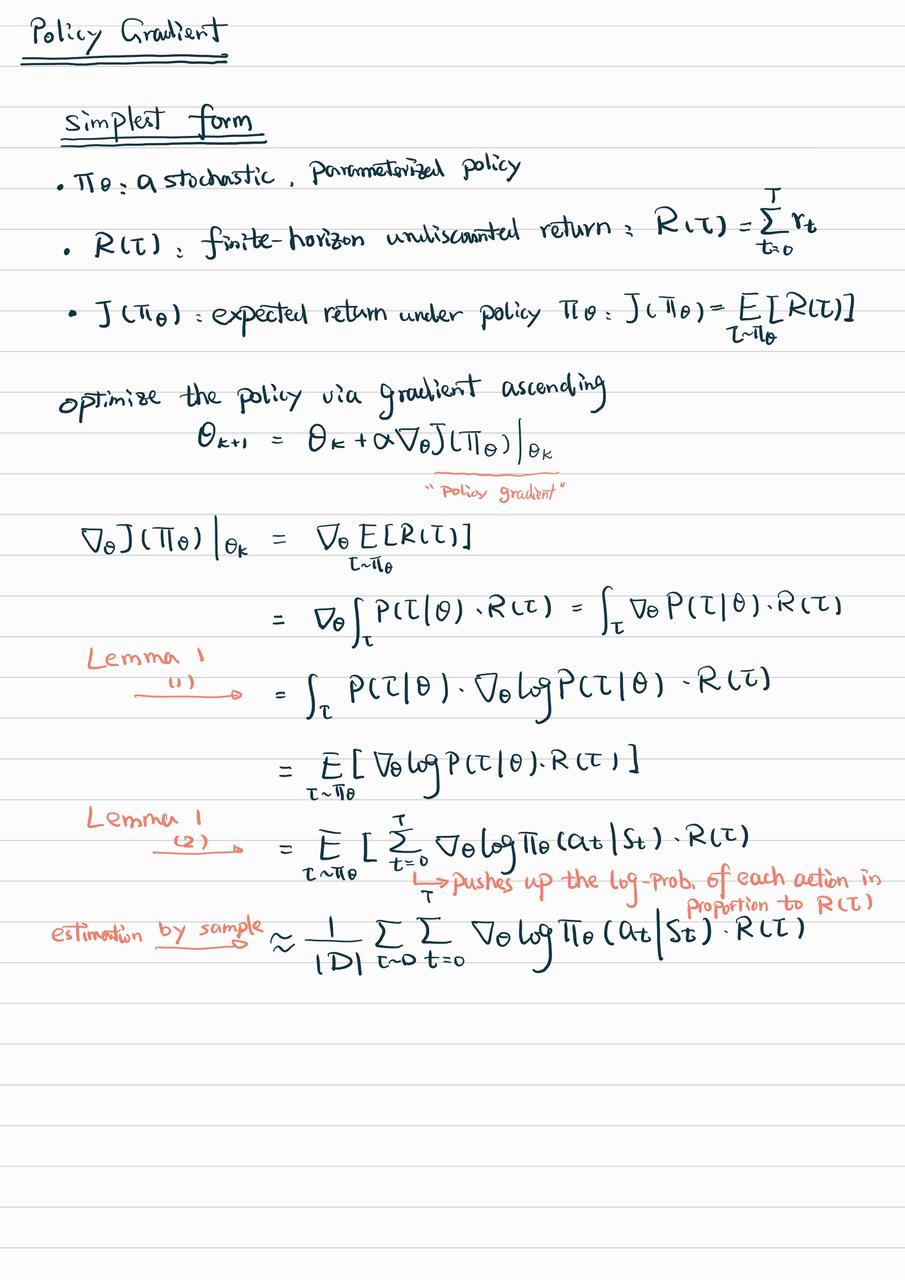 Policy Gradient
simplest form
• πθ : a stochastic, parameterized policy
• R(τ) : finite-horizon undiscounted return : R(τ) = ∑_{t=0}^{T} r_t
• J(π_θ) : expected return under policy π_θ : J(π_θ) = E_{τ~π_θ} [R(τ)]
optimize the policy via gradient ascending
θ_{k+1} = θ_k + α∇_θ J(π_θ)|_{θ_k}
"policy gradient"
∇_θ J(π_θ)|_{θ_k} = ∇_θ E_{τ~π_θ} [R(τ)]
= ∇_θ ∫_τ P(τ|θ) · R(τ) = ∫_τ ∇_θ P(τ|θ) · R(τ)
Lemma 1
(1) = ∫_τ P(τ|θ) · ∇_θ log P(τ|θ) · R(τ)
= E_{τ~π_θ} [ ∇_θ log P(τ|θ) · R(τ) ]
Lemma 1
(2) = E_{τ~π_θ} [ ∑_{t=0}^{T} ∇_θ log π_θ (a_t|s_t) · R(τ)
↳ pushes up the log-prob. of each action in
proportion to R(τ)
estimation by sample ≈ 1/|D| ∑_{τ~D} ∑_{t=0}^{T} ∇_θ log π_θ (a_t|s_t) · R(τ)